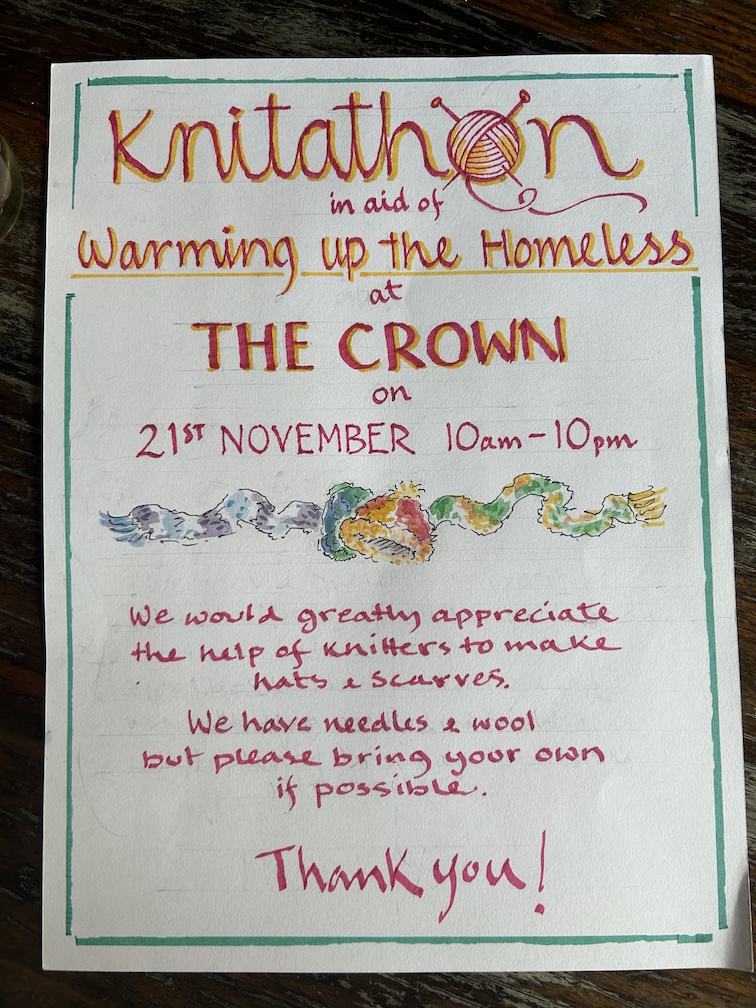 Knitathon
in aid of
Warming up the Homeless
at
THE CROWN
on
21ST NOVEMBER 10am-10pm
We would greatly appreciate
the help of knitters to make
hats & scarves.
We have needles & wool
but please bring your own
if possible.
Thank you!